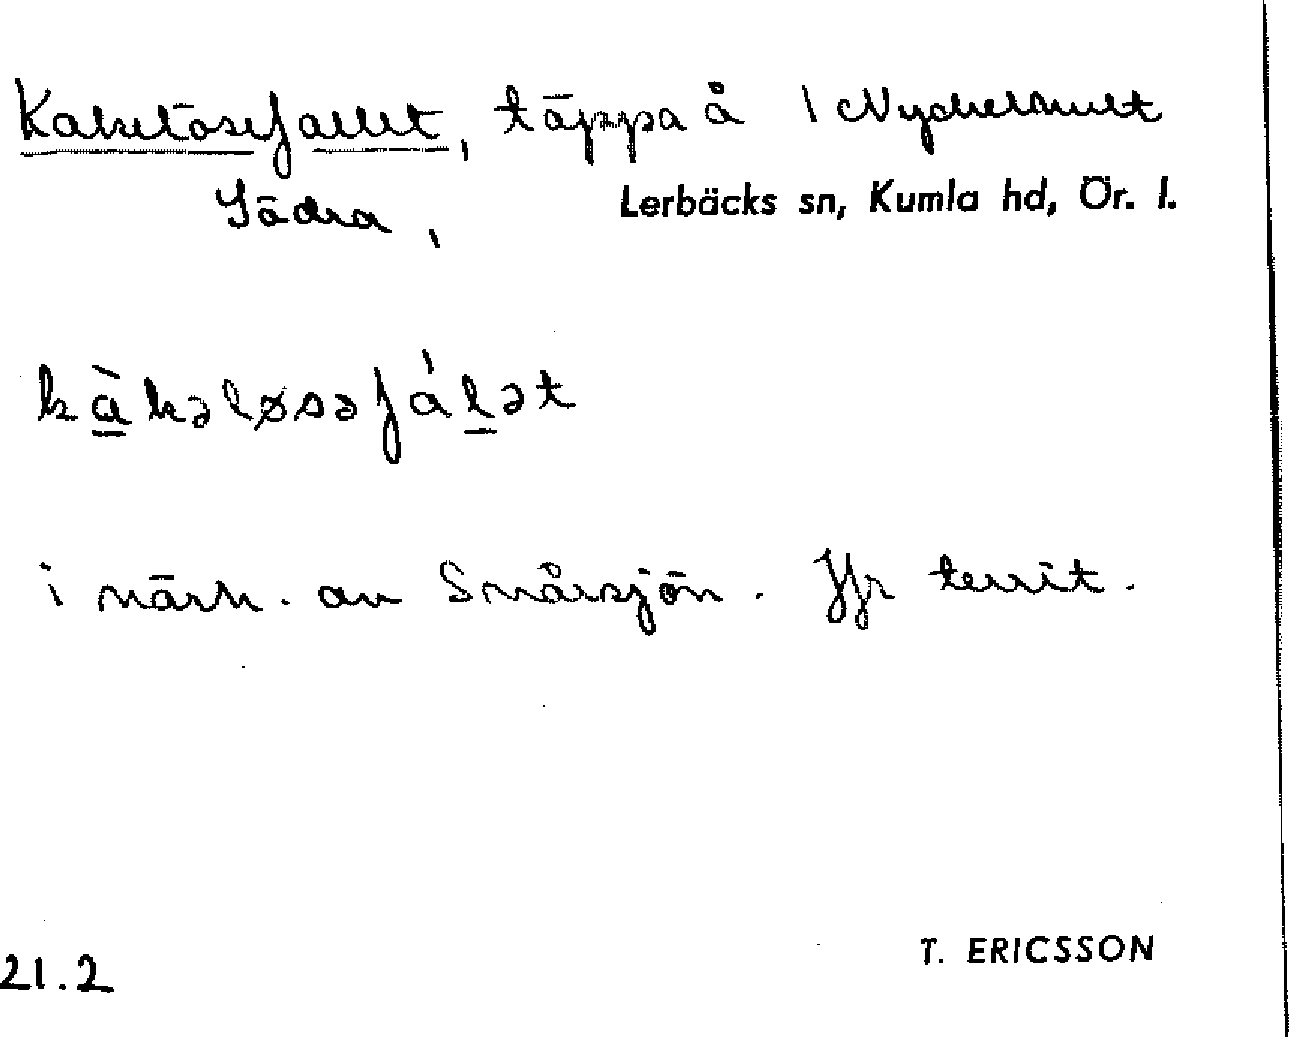 Kakelösefallet, täppa å 1 Nyckelhult
Södra, Lerbäcks sn, Kumla hd, Ör. l.
kàkələsəfálət
i närh. av Snårsjön. Jfr territ.
21.2 T. ERICSSON